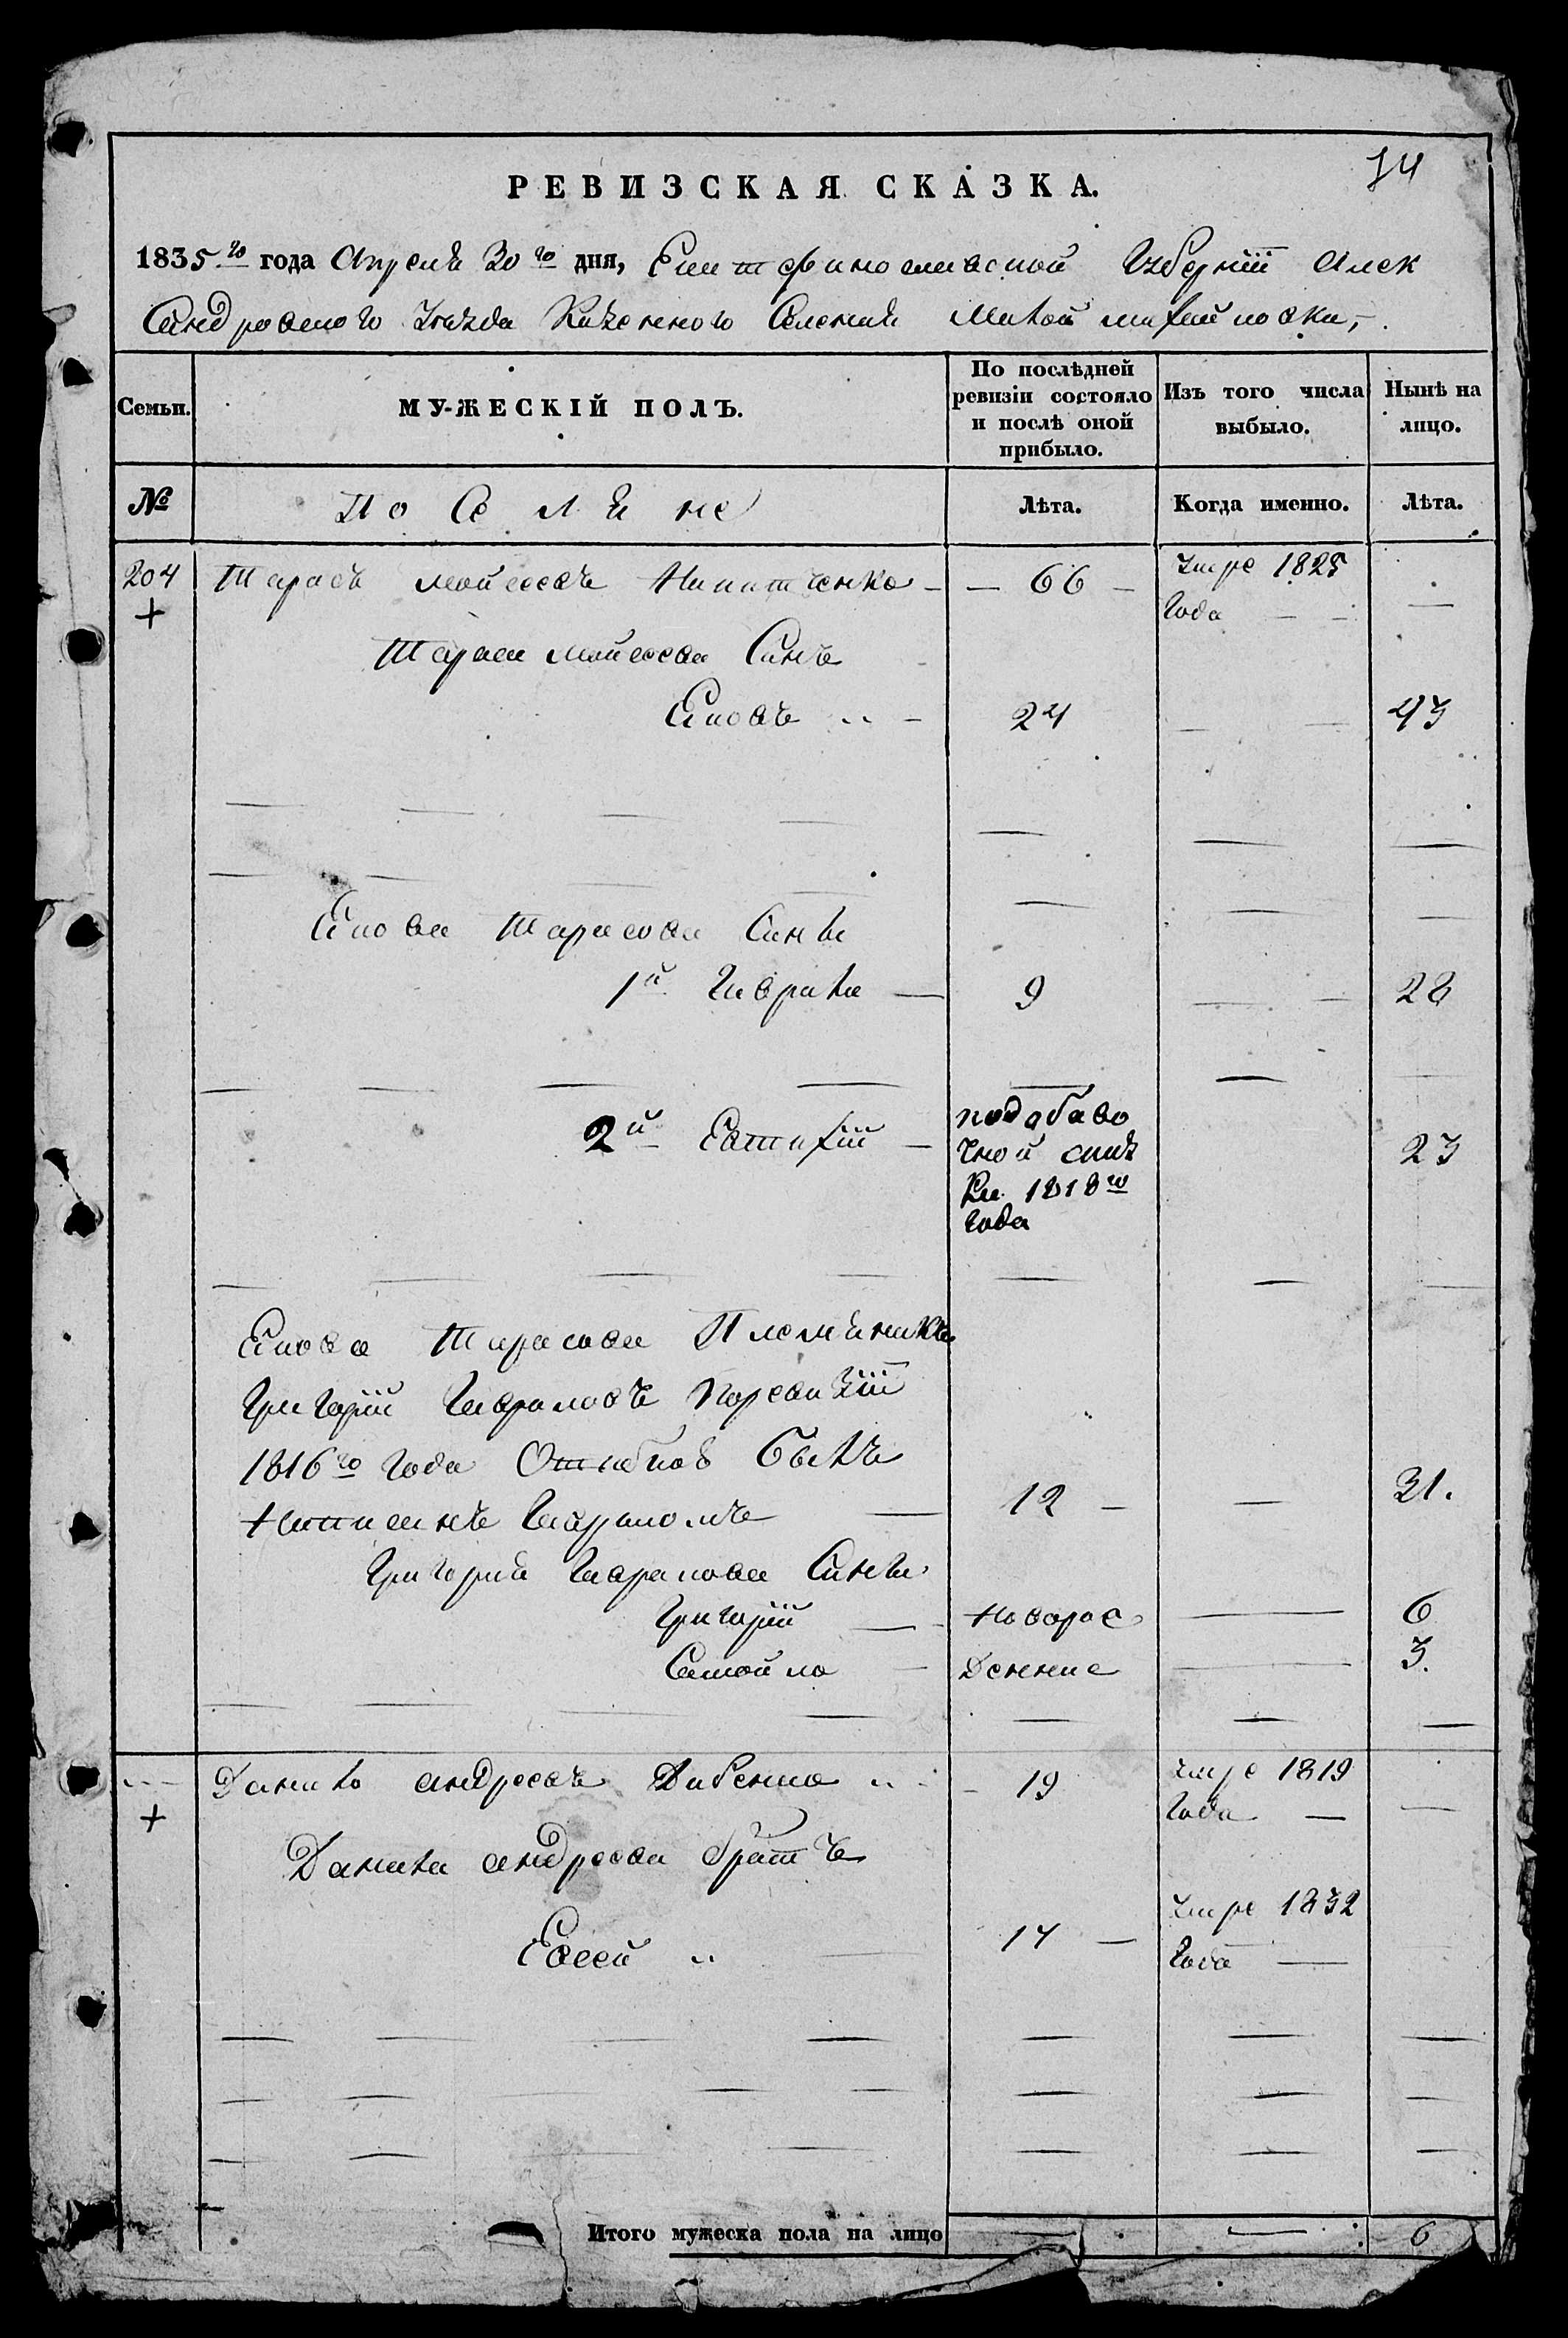 74
РЕВИЗСКАЯ СКАЗКА.
1835го года Апреля 30го дня, Екатеринославской Губернїи Алек
сандровского Уезда Казенного Селения Малой михайловки,
Семьи.
МУЖЕСКІЙ ПОЛЪ.
По послѣдней ревизіи состояло и послѣ оной прибыло.
Изъ того числа выбыло.
Нынѣ на лицо.
№
Поселяне
Лѣта.
Когда именно.
Лѣта.
204 Тарасъ мойсеевъ Никитченко 66 умре 1825
года
Тараса мойсеева Синъ
Яковъ 24 43
Якова Тарасова Сины
1й Гаврила 9 28
2й Евтихїй
подобаво
чной сказ
ки 1818го
года
23
Якова Тарасова Племяникъ
Григорїй Гавриловъ
1816го года билъ
Гавриломъ 12 31.
Григория Гаврилова Сины
Григорїй Новорож 6
Самойло дение 3.
Данило андреевъ 19 умре 1819
года
Данила андреева братъ
Евсей 14 умре 1832
года
Итого мужеска пола на лицо 6